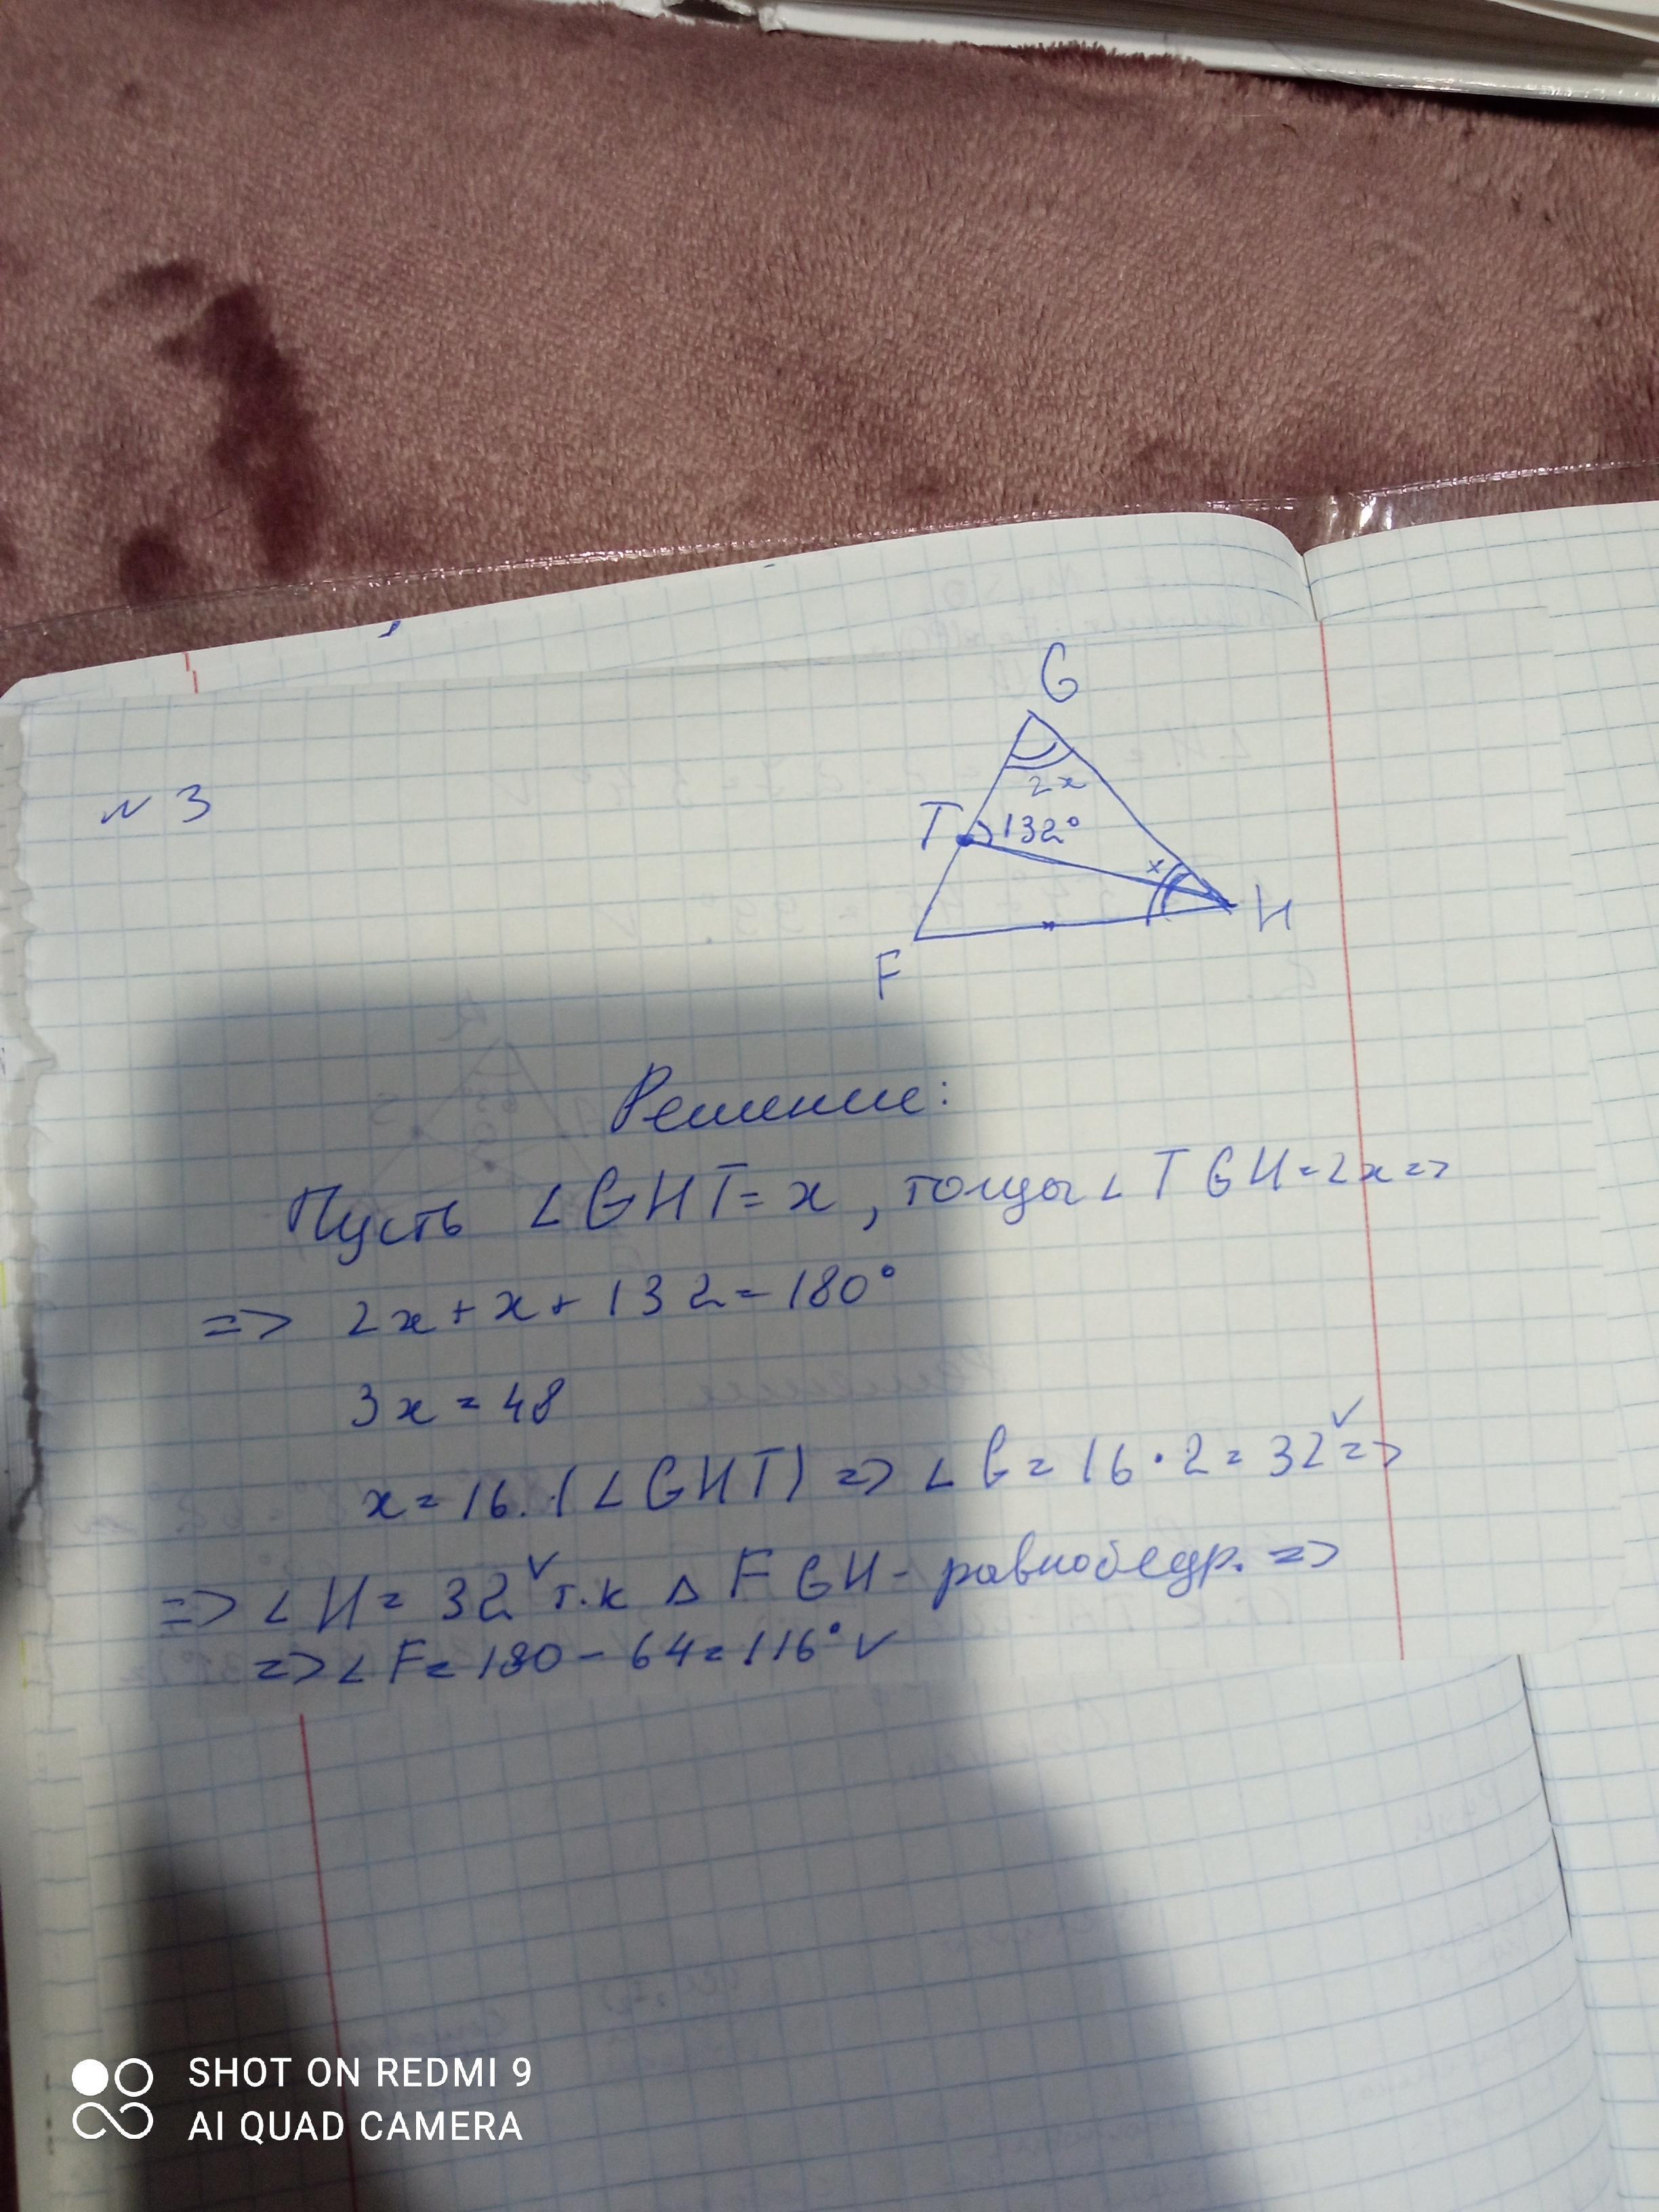 G
2x
N 3
T 132°
x
H
F
Решение:
Пусть ∠GHT = x, тогда ∠TGH = 2x =>
=> 2x + x + 132 = 180°
3x = 48
x = 16. (∠GHT) => ∠G = 16 · 2 = 32 ✓ =>
=> ∠H = 32 ✓ т.к Δ FGH - равнобедр. =>
=> ∠F = 180 - 64 = 116° ✓
SHOT ON REDMI 9
AI QUAD CAMERA